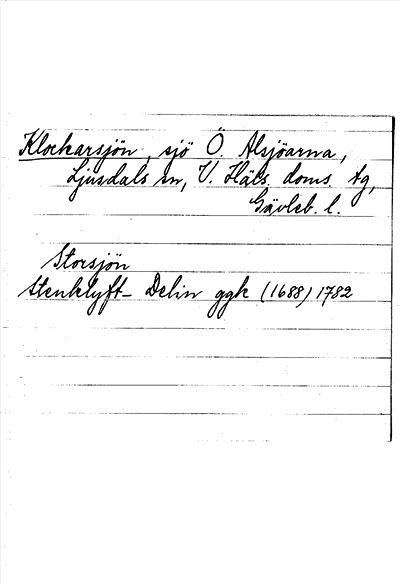 Klockarsjön, sjö Ö. Alsjöarna,
Ljusdals sn, V. Häls. doms. tg,
Gävleb. l.
Storsjön
Stenklyft- Delin ggk (1688) 1782